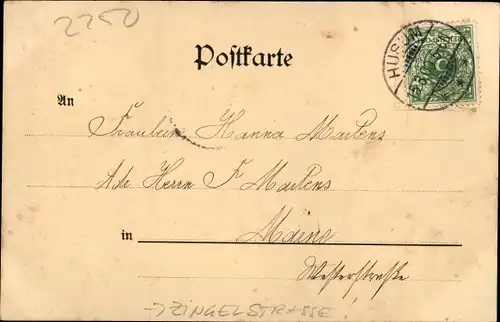 2250
HUSUM
Postkarte
An
Fräulein Hanna Martens
Adr. Herrn F Martens
in Mainz
Westerstraße
→ZINGELSTRASSE!